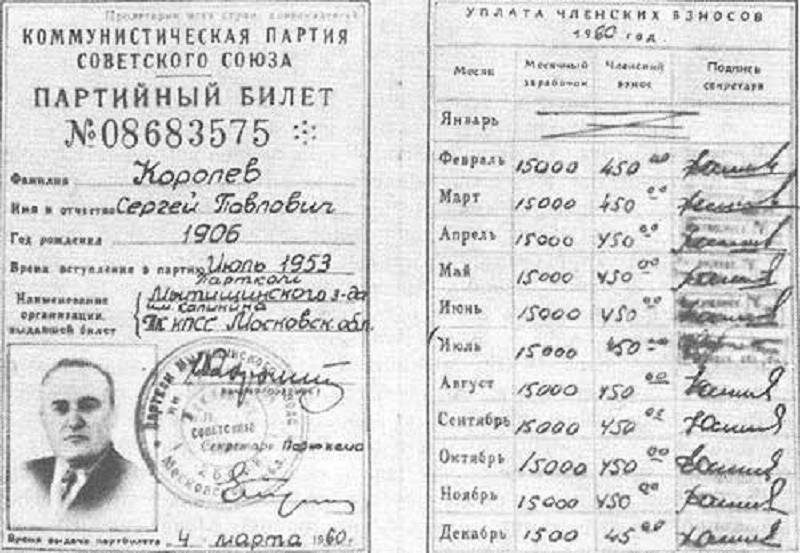 Пролетарии всех стран, соединяйтесь!
КОММУНИСТИЧЕСКАЯ ПАРТИЯ
СОВЕТСКОГО СОЮЗА
ПАРТИЙНЫЙ БИЛЕТ
№08683575
Фамилия Королев
Имя и отчество Сергей Павлович
Год рождения 1906
Время вступления в партию Июль 1953
Наименование организации, выдавшей билет
Партком
Мытищинского з-да
им. Калинина
ГК КПСС Московск. обл.
Секретарь Парткома
Время выдачи партбилета 4 марта 1960г.
УПЛАТА ЧЛЕНСКИХ ВЗНОСОВ
1960 год.
Месяц Месячный заработок Членский взнос Подпись секретаря
Январь
Февраль 15000 450 00
Март 15000 450 00
Апрель 15000 450 00
Май 15000 450 00
Июнь 15000 450 00
Июль 15000 450 00
Август 15000 450 00
Сентябрь 15000 450 00
Октябрь 15000 450 00
Ноябрь 15000 450 00
Декабрь 1500 45 00